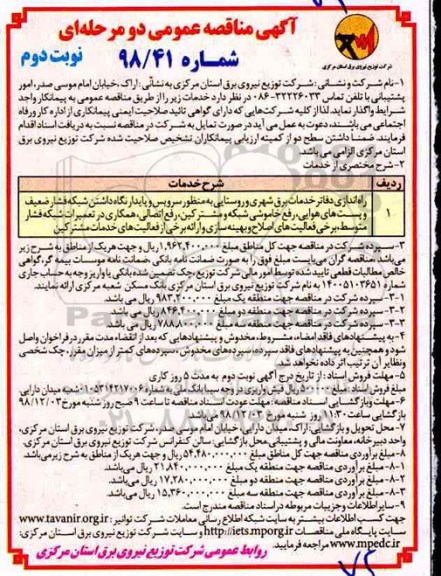 آگهی مناقصه عمومی دو مرحله‌ای
شماره ۹۸/۴۱
نوبت دوم
شرکت توزیع نیروی برق استان مرکزی
۱-نام شرکت و نشانی: شرکت توزیع نیروی برق استان مرکزی به نشانی: اراک، خیابان امام موسی صدر، امور
پشتیبانی با تلفن تماس ۳۲۲۲۶۰۳۳-۰۸۶ در نظر دارد خدمات زیر را از طریق مناقصه عمومی به پیمانکار واجد
شرایط واگذار نماید. لذا از کلیه شرکت‌هایی که دارای گواهی تائید صلاحیت ایمنی پیمانکاری از اداره کار و رفاه
اجتماعی می‌باشند، دعوت به عمل می آید در صورت تمایل به شرکت در مناقصه نسبت به دریافت اسناد اقدام
فرمایند. ضمناً داشتن سطح دو از کمیته ارزیابی پیمانکاران تشخیص صلاحیت شده شرکت توزیع نیروی برق
استان مرکزی الزامی می باشد.
۲-شرح مختصری از خدمات
ردیف شرح خدمات
۱ راه اندازی دفاتر خدمات برق شهری و روستایی به منظور سرویس و پایدار نگاه داشتن شبکه فشار ضعیف
و پست های هوایی، رفع خاموشی شبکه و مشترکین، رفع اتصالی، همکاری در تعمیرات شبکه فشار
متوسط، برخی فعالیت های اصلاح و بهینه سازی و ارائه برخی از فعالیت های خدمات مشترکین
۳-سپرده شرکت در مناقصه جهت کل مناطق مبلغ ۱,۹۶۲,۴۰۰,۰۰۰ ریال و جهت هریک از مناطق به شرح زیر
می‌باشد. مناقصه گران می‌بایست مبلغ فوق را به صورت ضمانت نامه بانکی، ضمانت نامه موسسات بیمه گر، گواهی
خالص مطالبات قطعی تایید شده توسط امور مالی شرکت توزیع، چک تضمین شده بانکی یا واریز وجه به حساب جاری
شماره ۱۴۰۰۵۱۰۳۶۵۱ به نام شرکت توزیع نیروی برق استان مرکزی بانک مسکن شعبه مرکزی ارائه نمایند.
۳-۱-سپرده شرکت در مناقصه جهت منطقه یک مبلغ ۹۸۳,۲۰۰,۰۰۰ ریال می باشد.
۳-۲-سپرده شرکت در مناقصه جهت منطقه دو مبلغ ریال می باشد.
۳-۳-سپرده شرکت در مناقصه جهت منطقه سه مبلغ ریال می باشد.
۴-به پیشنهادهای فاقد امضاء، مشروط، مخدوش و پیشنهادهایی که بعد از انقضاء مدت مقرر در فراخوان واصل
شود و همچنین به پیشنهادهای فاقد سپرده، سپرده‌های مخدوش، سپرده‌های کمتر از میزان مقرر، چک شخصی
و نظایر آن ترتیب اثر داده نخواهد شد
۵- مهلت فروش اسناد: از تاریخ درج آگهی نوبت دوم به مدت ۵ روز کاری
مبلغ فروش اسناد: مبلغ ریال فیش واریزی در وجه سیبا بانک ملی به شماره شعبه میدان دارایی.
۶- مهلت و بازگشایی اسناد مناقصه: مهلت عودت اسناد مناقصه تا ساعت ۹ صبح روز شنبه مورخ ۹۸/۱۲/۰۳
بازگشایی ساعت ۱۱:۳۰ روز شنبه مورخ ۹۸/۱۲/۰۳
۷-محل تحویل و بازگشایی: اراک، میدان دارایی، خیابان امام موسی صدر، شرکت توزیع نیروی برق استان مرکزی،
واحد دبیرخانه، معاونت مالی و پشتیبانی، محل بازگشایی: سالن کنفرانس شرکت توزیع نیروی برق استان مرکزی.
۸-مبلغ برآوردی مناقصه جهت کل مناطق مبلغ ۵۴,۴۸۰,۰۰۰,۰۰۰ ریال و جهت هریک از مناطق به شرح زیر می‌باشد.
۸-۱-مبلغ برآوردی مناقصه جهت منطقه یک مبلغ ۲۱,۸۴۰,۰۰۰,۰۰۰ ریال می‌باشد.
۸-۲-مبلغ برآوردی مناقصه جهت منطقه دو مبلغ ۱۷,۲۸۰,۰۰۰,۰۰۰ ریال می‌باشد.
۸-۳-مبلغ برآوردی مناقصه جهت منطقه سه مبلغ ۱۵,۳۶۰,۰۰۰,۰۰۰ ریال می‌باشد.
۹-سایر اطلاعات و جزییات مربوطه در اسناد مناقصه مندرج است.
جهت کسب اطلاعات بیشتر به سایت شبکه اطلاع رسانی معاملات شرکت توانیر: www.tavanir.org.ir
سایت پایگاه ملی مناقصات http://iets.mporg.ir و سایت شرکت توزیع نیروی برق استان مرکزی:
www.mpedc.ir مراجعه فرمایید.
روابط عمومی شرکت توزیع نیروی برق استان مرکزی